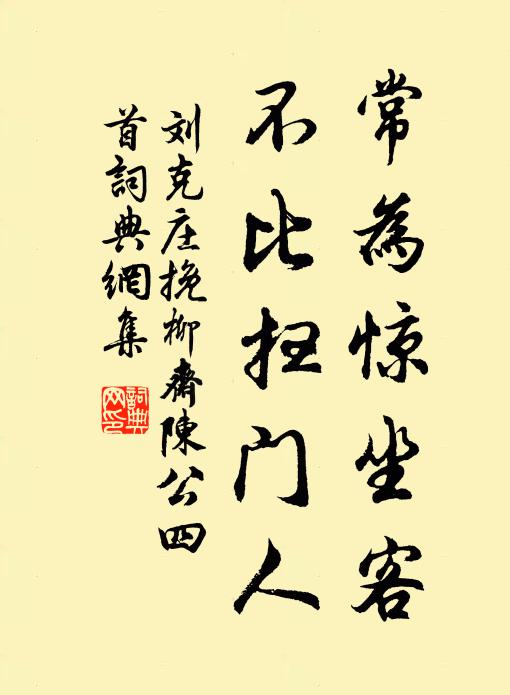 常為惊坐客
不比扫门人
刘克庄挽柳斋陳公四
首詞典網集
詞典
网印